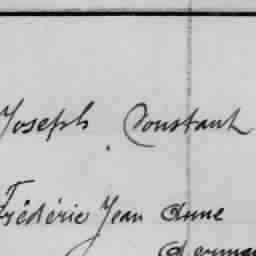 Joseph Constant
Frédéric Jean Anne